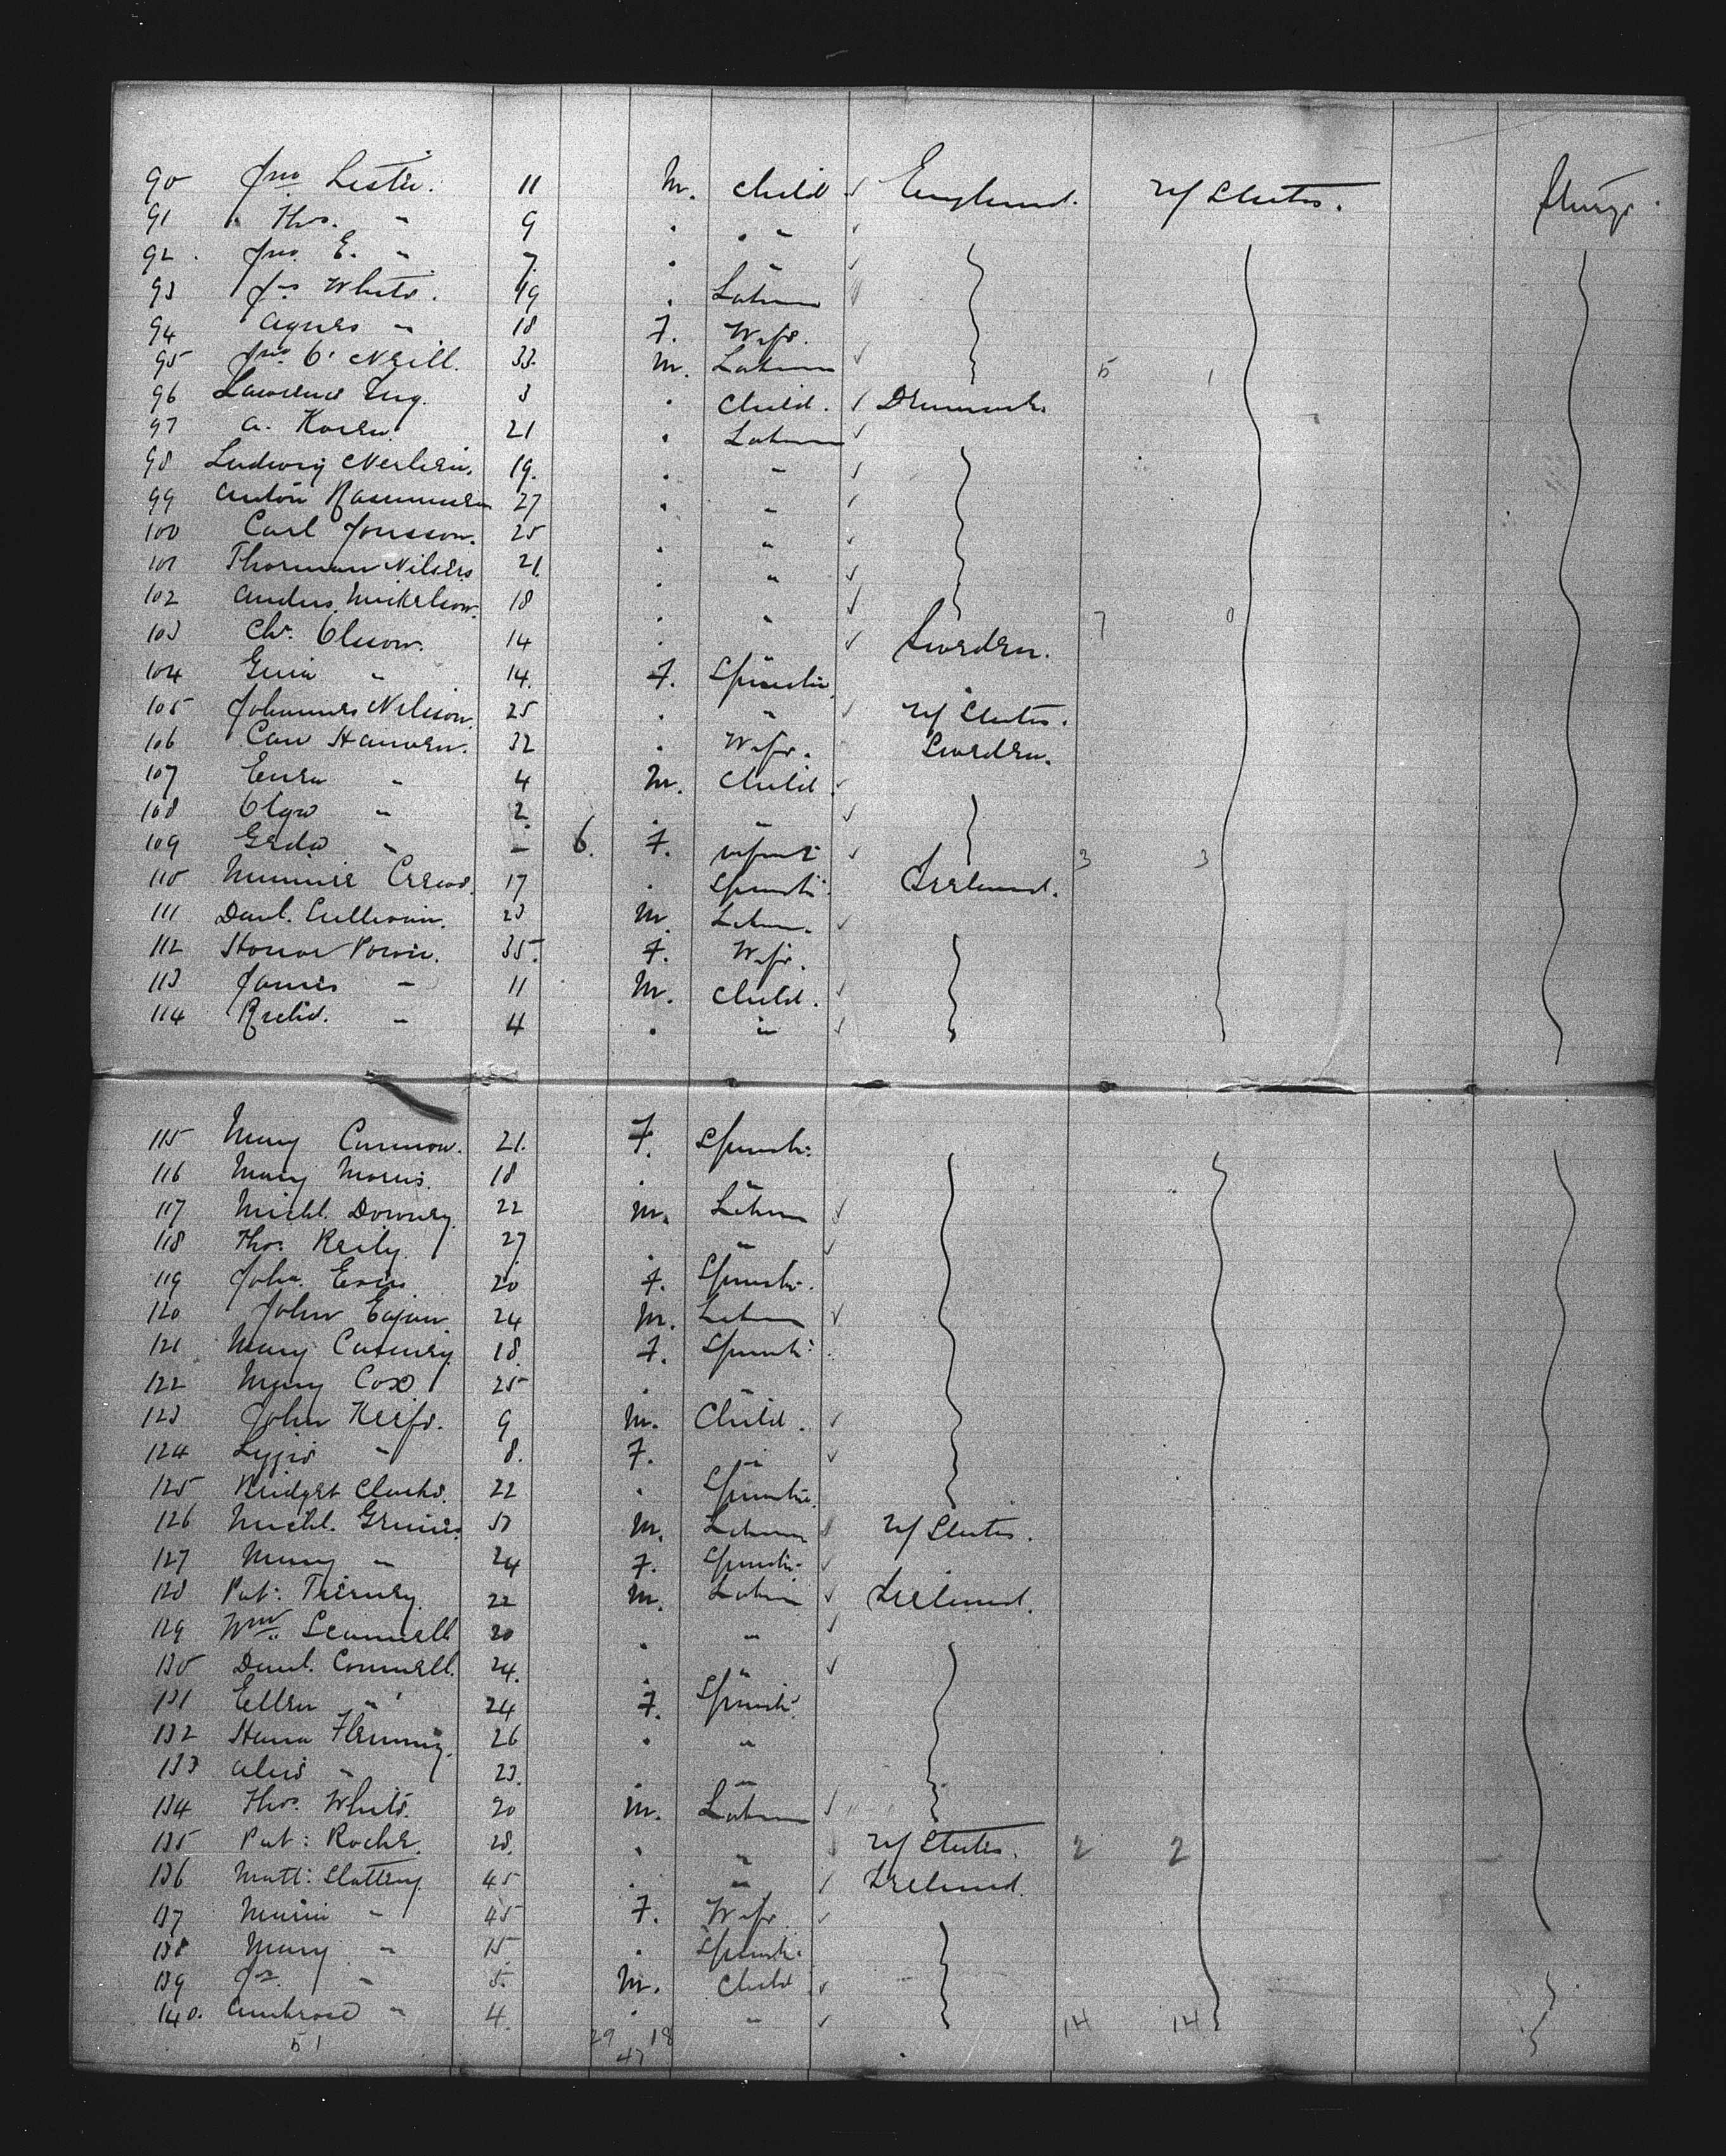 90 Jno Lester. 11 M. Child England. U/ States. Steerge.
91 " Thos. " 9 . . "
92. Jno. E. " 7. . "
93 Jas White. 19 . Labourer
94 Agnes " 18 F. Wife.
95 Jno O'Neill. 33. M. Labourer 5 1
96 Lawrence 3 . Child. Denmark.
97 A. 21 . Labourer
98 Ludwig 19. . "
99 Anton Rasmussen 27 . "
100 Carl Jonsson. 25 . "
101 21. . "
102 Anders 18 . " 7 0
103 Chr. Olsson. 14 . Sweden.
104 " 14. F. Spinster
105 Johannes Nilsson. 25 . " U/ States.
106 Hansen. 32 . Wife. Sweden.
107 " 4 M. Child.
108 Olga " 2. . "
109 Gerda " - 6. F. infant 3 3
110 Minnie 17 . Spinster. Ireland.
111 Danl. Sullivan. 23 M. Labour.
112 Honor Power. 35. F. Wife.
113 James " 11 M. Child.
114 Richd. " 4 . "
115 Mary 21. F. Spinster.
116 Mary Morris. 18 . "
117 Michl. Downey. 22 M. Labourer
118 Thos. Reily. 27. . "
119 20 F. Spinster.
120 John 24 M. Labourer
121 Mary 18. F. Spinster.
122 Mary Cox. 25 . "
123 John Keefe. 9 M. Child.
124 Lizzie " 8. F. "
125 Bridget Clarke. 22 . Spinster.
126 Michl. M. Labourer U/ States.
127 Mary " 24 F. Spinster
128 Pat: Tierney. 22 M. Labour Ireland.
129 Wm. Scannell 20 . "
130 Danl. Connell. 24. . "
131 Ellen " 24 F. Spinster.
132 Hana Fleming. 26 . "
133 Alice " 23. . "
134 Thos. White. 20 M. Labourer
135 Pat: Roche. 28. . " U/ States. 2 2
136 Matt: Slattery. 45 . " Ireland.
137 Maria " 45 F. Wife
138 Mary " 15 . Spinster.
139 Js. " 5. M. Child
140. Ambrose " 4. . " 14 14
51 29 18
47